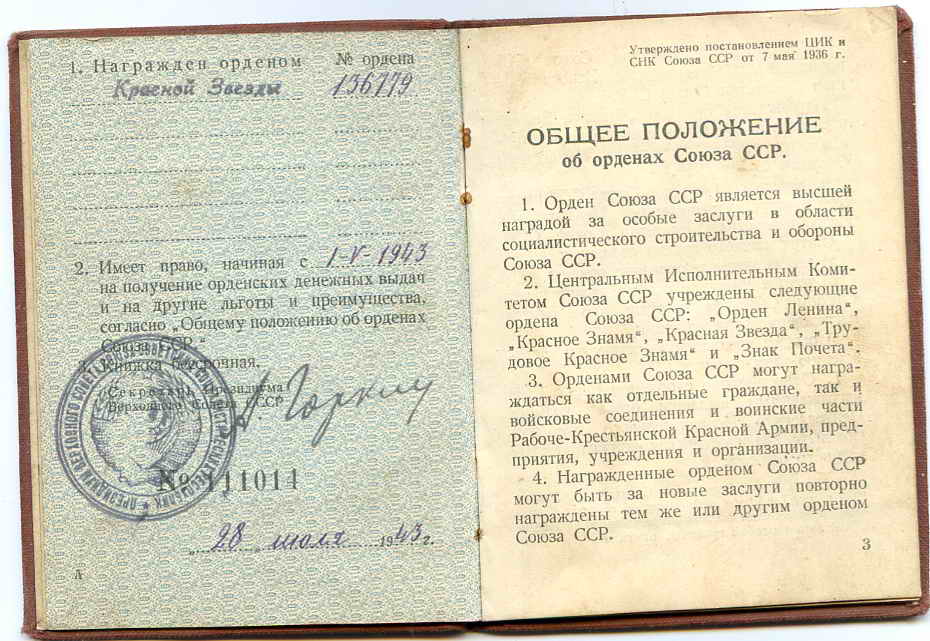 1. Награжден орденом № ордена
Красной Звезды 136779
2. Имеет право, начиная с 1-V-1943
на получение орденских денежных выдач
и на другие льготы и преимущества,
согласно „Общему положению об орденах
Союза ССР.“
3. Книжка бессрочная.
Секретарь Президиума
Верховного Совета СССР
А Горкин
№ 111011
„28 „ июля 1943 г.
А
Утверждено постановлением ЦИК и
СНК Союза ССР от 7 мая 1936 г.
ОБЩЕЕ ПОЛОЖЕНИЕ
об орденах Союза ССР.
1. Орден Союза ССР является высшей
наградой за особые заслуги в области
социалистического строительства и обороны
Союза ССР.
2. Центральным Исполнительным Коми-
тетом Союза ССР учреждены следующие
ордена Союза ССР: „Орден Ленина“,
„Красное Знамя“, „Красная Звезда“, „Тру-
довое Красное Знамя“ и „Знак Почета“.
3. Орденами Союза ССР могут награ-
ждаться как отдельные граждане, так и
войсковые соединения и воинские части
Рабоче-Крестьянской Красной Армии, пред-
приятия, учреждения и организации.
4. Награжденные орденом Союза ССР
могут быть за новые заслуги повторно
награждены тем же или другим орденом
Союза ССР.
3